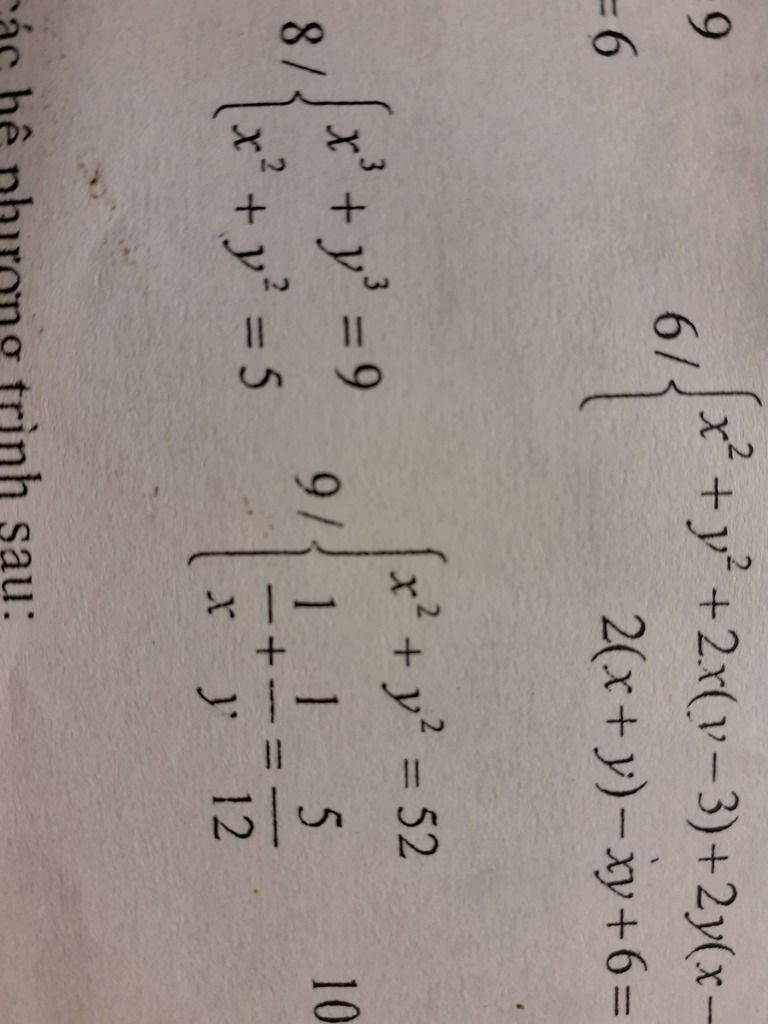 9
= 6
6/ { x² + y² + 2x(y – 3) + 2y(x –
2(x + y) – xy + 6 =
8/ { x³ + y³ = 9
x² + y² = 5
9/ { x² + y² = 52
1/x + 1/y = 5/12
10
các hệ phương trình sau: